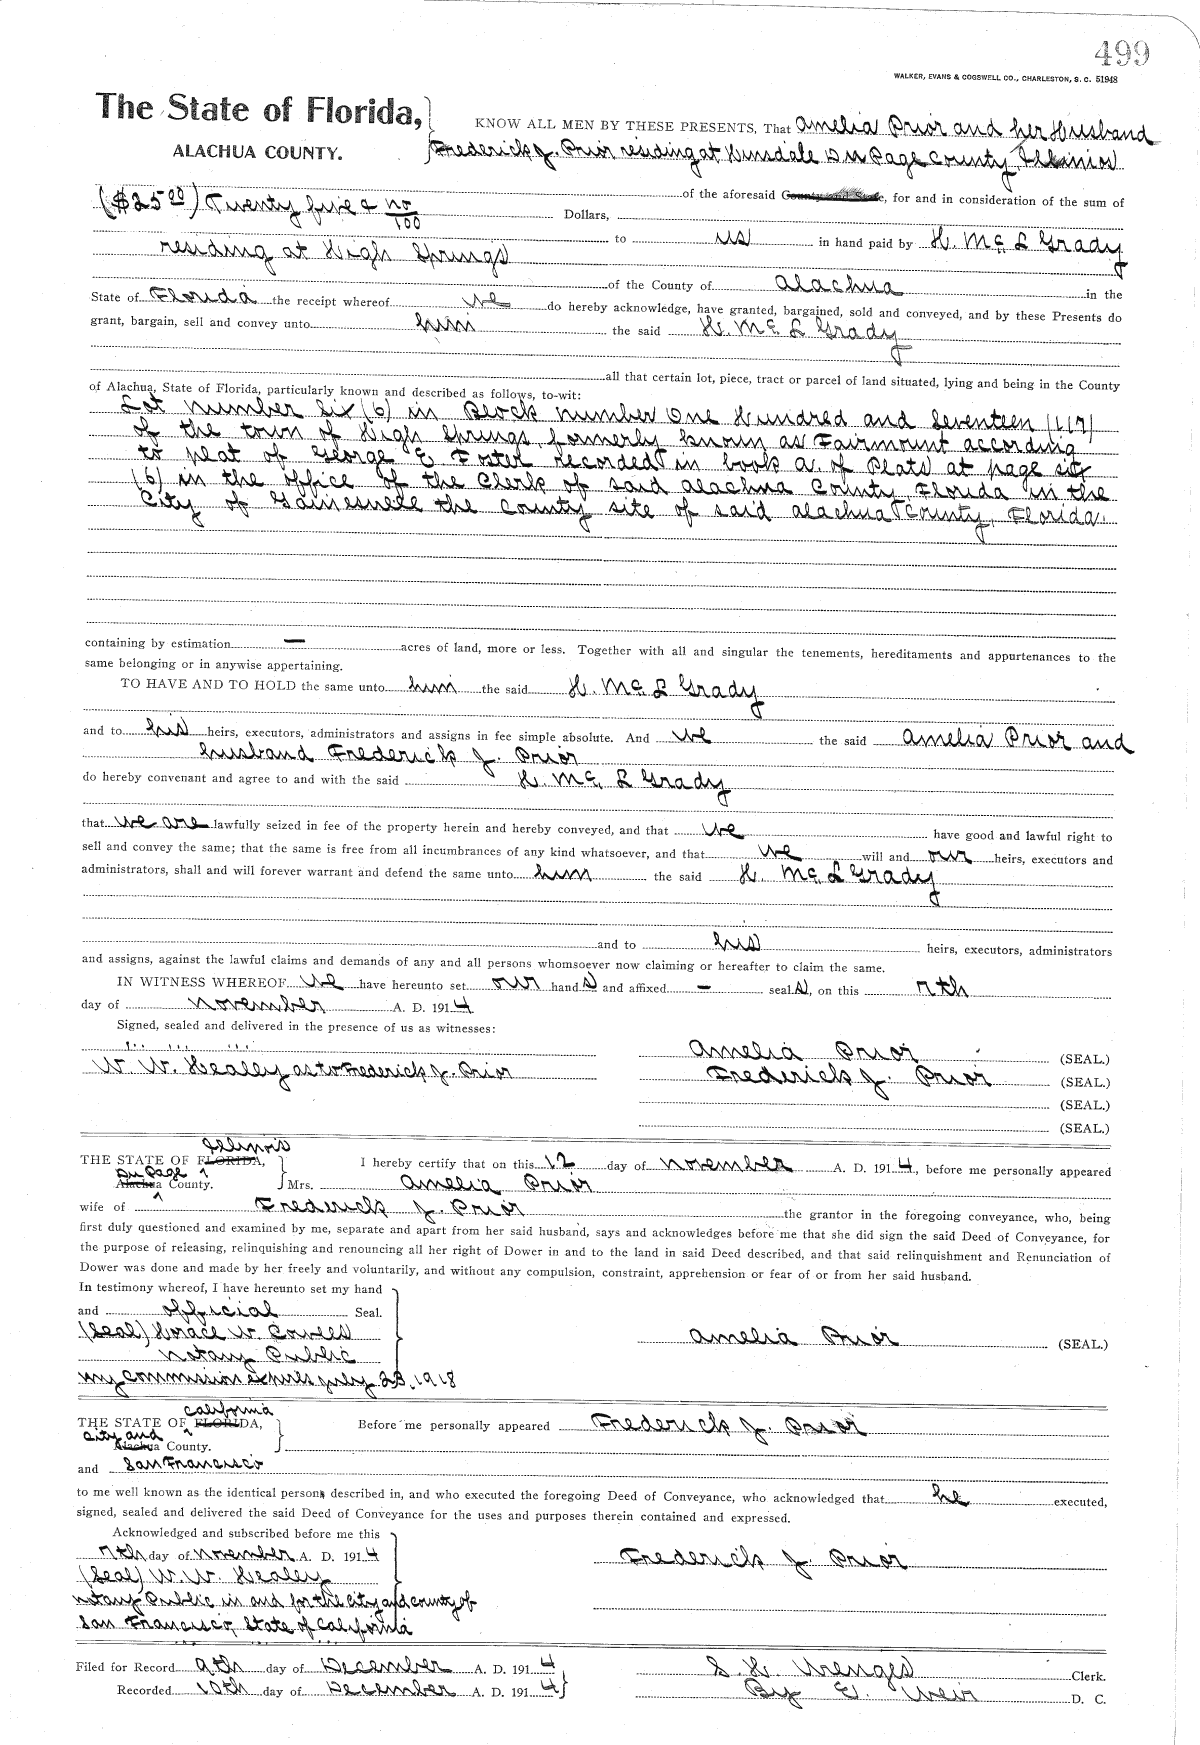 499
WALKER, EVANS & COGSWELL CO., CHARLESTON, S. C. 51948
The State of Florida,
ALACHUA COUNTY.
KNOW ALL MEN BY THESE PRESENTS, That Amelia Prior and her Husband
Frederick J. Prior residing at Hinsdale Du Page County Illinios
of the aforesaid County and State, for and in consideration of the sum of
($25 00) Twenty five & no/100 Dollars,
to us in hand paid by H. Mc L Grady
residing at High Springs
of the County of Alachua in the
State of Florida the receipt whereof we do hereby acknowledge, have granted, bargained, sold and conveyed, and by these Presents do
grant, bargain, sell and convey unto him the said H. Mc L Grady
all that certain lot, piece, tract or parcel of land situated, lying and being in the County
of Alachua, State of Florida, particularly known and described as follows, to-wit:
Lot number six (6) in Block number One Hundred and Seventeen (117)
of the town of High Springs, formerly known as Fairmount according
to plat of George E Foster recorded in book A. of Plats at page six
(6) in the office of the Clerk of said Alachua County Florida in the
City of Gainesville the county site of said Alachua County, Florida.
containing by estimation — acres of land, more or less. Together with all and singular the tenements, hereditaments and appurtenances to the
same belonging or in anywise appertaining.
TO HAVE AND TO HOLD the same unto him the said H. Mc L Grady
and to his heirs, executors, administrators and assigns in fee simple absolute. And we the said Amelia Prior and
husband Frederick J. Prior
do hereby convenant and agree to and with the said H. Mc. L Grady
that we are lawfully seized in fee of the property herein and hereby conveyed, and that we have good and lawful right to
sell and convey the same; that the same is free from all incumbrances of any kind whatsoever, and that we will and our heirs, executors and
administrators, shall and will forever warrant and defend the same unto him the said H. Mc L Grady
and to his heirs, executors, administrators
and assigns, against the lawful claims and demands of any and all persons whomsoever now claiming or hereafter to claim the same.
IN WITNESS WHEREOF we have hereunto set our hand s and affixed – seal s, on this 7th
day of November A. D. 1914
Signed, sealed and delivered in the presence of us as witnesses:
Amelia Prior (SEAL.)
W. W. Healey as to Frederick J. Prior
Frederick J. Prior (SEAL.)
(SEAL.)
(SEAL.)
Illinois
THE STATE OF FLORIDA,
Du Page
Alachua County.
I hereby certify that on this 12 day of November A. D. 1914, before me personally appeared
Mrs. Amelia Prior
wife of Frederick J. Prior the grantor in the foregoing conveyance, who, being
first duly questioned and examined by me, separate and apart from her said husband, says and acknowledges before me that she did sign the said Deed of Conveyance, for
the purpose of releasing, relinquishing and renouncing all her right of Dower in and to the land in said Deed described, and that said relinquishment and Renunciation of
Dower was done and made by her freely and voluntarily, and without any compulsion, constraint, apprehension or fear of or from her said husband.
In testimony whereof, I have hereunto set my hand
and official Seal.
(Seal) Horace W.
Notary Public
My commission expires July 23, 1918
Amelia Prior (SEAL.)
California
THE STATE OF FLORIDA,
City and
Alachua County.
and San Francisco
Before me personally appeared Frederick J. Prior
to me well known as the identical persons described in, and who executed the foregoing Deed of Conveyance, who acknowledged that he executed,
signed, sealed and delivered the said Deed of Conveyance for the uses and purposes therein contained and expressed.
Acknowledged and subscribed before me this
7th day of November A. D. 1914
(Seal) W. W. Healey
Notary Public in and for the City and county of
San Francisco, State of California
Frederick J Prior
Filed for Record 9th day of December A. D. 1914
Recorded 10th day of December A. D. 1914
S. H. Wienges Clerk.
By E. Weir D. C.